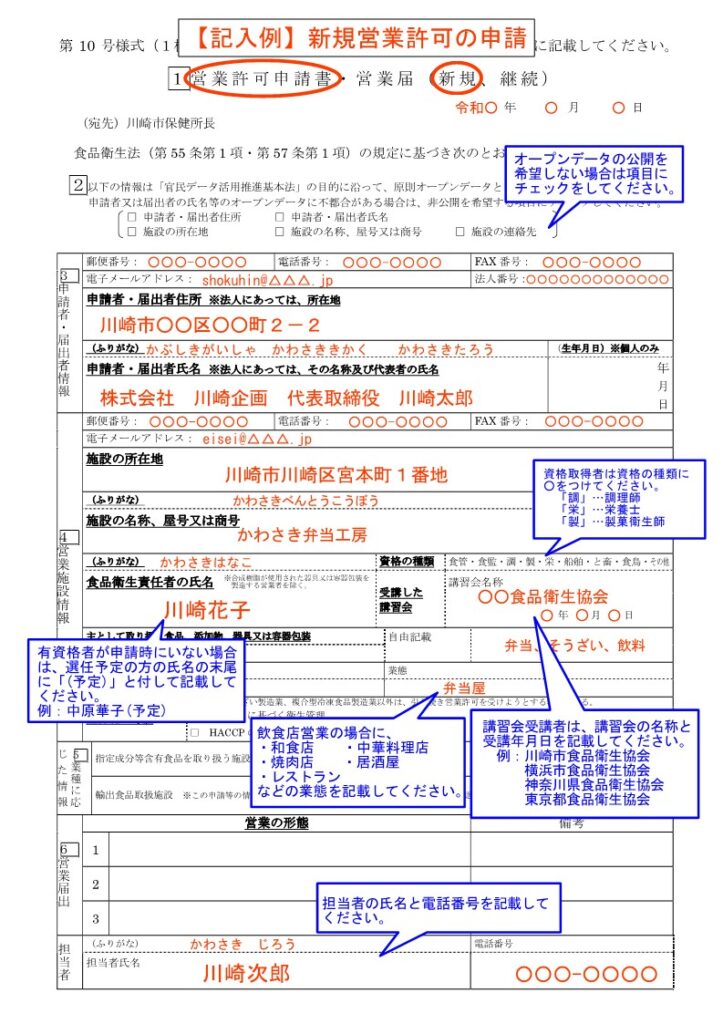 【記入例】新規営業許可の申請
第 10 号様式（１枚
に記載してください。
1 営業許可申請書・営業届（新規、継続）
令和〇 年 〇 月 〇 日
（宛先）川崎市保健所長
食品衛生法（第 55 条第１項・第 57 条第１項）の規定に基づき次のとお
オープンデータの公開を
希望しない場合は項目に
チェックをしてください。
2 以下の情報は「官民データ活用推進基本法」の目的に沿って、原則オープンデータと
申請者又は届出者の氏名等のオープンデータに不都合がある場合は、非公開を希望する項目にチェックしてください。
□ 申請者・届出者住所 □ 申請者・届出者氏名
□ 施設の所在地 □ 施設の名称、屋号又は商号 □ 施設の連絡先
3 申請者・届出者情報
郵便番号： 〇〇〇-〇〇〇〇 電話番号： 〇〇〇-〇〇〇〇 FAX 番号： 〇〇〇-〇〇〇〇
電子メールアドレス： shokuhin@△△△.jp 法人番号：〇〇〇〇〇〇〇〇〇〇〇〇〇
申請者・届出者住所 ※法人にあっては、所在地
川崎市〇〇区〇〇町２－２
（ふりがな） かぶしきがいしゃ かわさききかく かわさきたろう （生年月日）※個人のみ
申請者・届出者氏名 ※法人にあっては、その名称及び代表者の氏名
年
月
日
株式会社 川崎企画 代表取締役 川崎太郎
4 営業施設情報
郵便番号： 〇〇〇-〇〇〇〇 電話番号： 〇〇〇-〇〇〇〇 FAX 番号： 〇〇〇-〇〇〇〇
電子メールアドレス： eisei@△△△.jp
施設の所在地
川崎市川崎区宮本町１番地
資格取得者は資格の種類に
〇をつけてください。
「調」…調理師
「栄」…栄養士
「製」…製菓衛生師
（ふりがな） かわさきべんとうこうぼう
施設の名称、屋号又は商号
かわさき弁当工房
（ふりがな） かわさきはなこ 資格の種類 食管・食監・調・製・栄・船舶・と畜・食鳥・その他
食品衛生責任者の氏名 ※合成樹脂が使用された器具又は容器包装を
製造する営業者を除く。
川崎花子
受講した
講習会
講習会名称
〇〇食品衛生協会
〇 年 〇 月 〇 日
主として取り扱う食品、添加物、器具又は容器包装 自由記載
弁当、そうざい、飲料
業態
弁当屋
有資格者が申請時にいない場合
は、選任予定の方の氏名の末尾
に「(予定)」と付して記載して
ください。
例：中原華子(予定)
□ HACCP の
飲食店営業の場合に、
・和食店 ・中華料理店
・焼肉店 ・居酒屋
・レストラン
などの業態を記載してください。
講習会受講者は、講習会の名称と
受講年月日を記載してください。
例：川崎市食品衛生協会
横浜市食品衛生協会
神奈川県食品衛生協会
東京都食品衛生協会
5 業種に応じた情報
指定成分等含有食品を取り扱う施設
輸出食品取扱施設 ※この申請等の情
6 営業届出
営業の形態 備考
1
2
3
担当者の氏名と電話番号を記載して
ください。
担当者
（ふりがな） かわさき じろう 電話番号
担当者氏名
川崎次郎 〇〇〇-〇〇〇〇